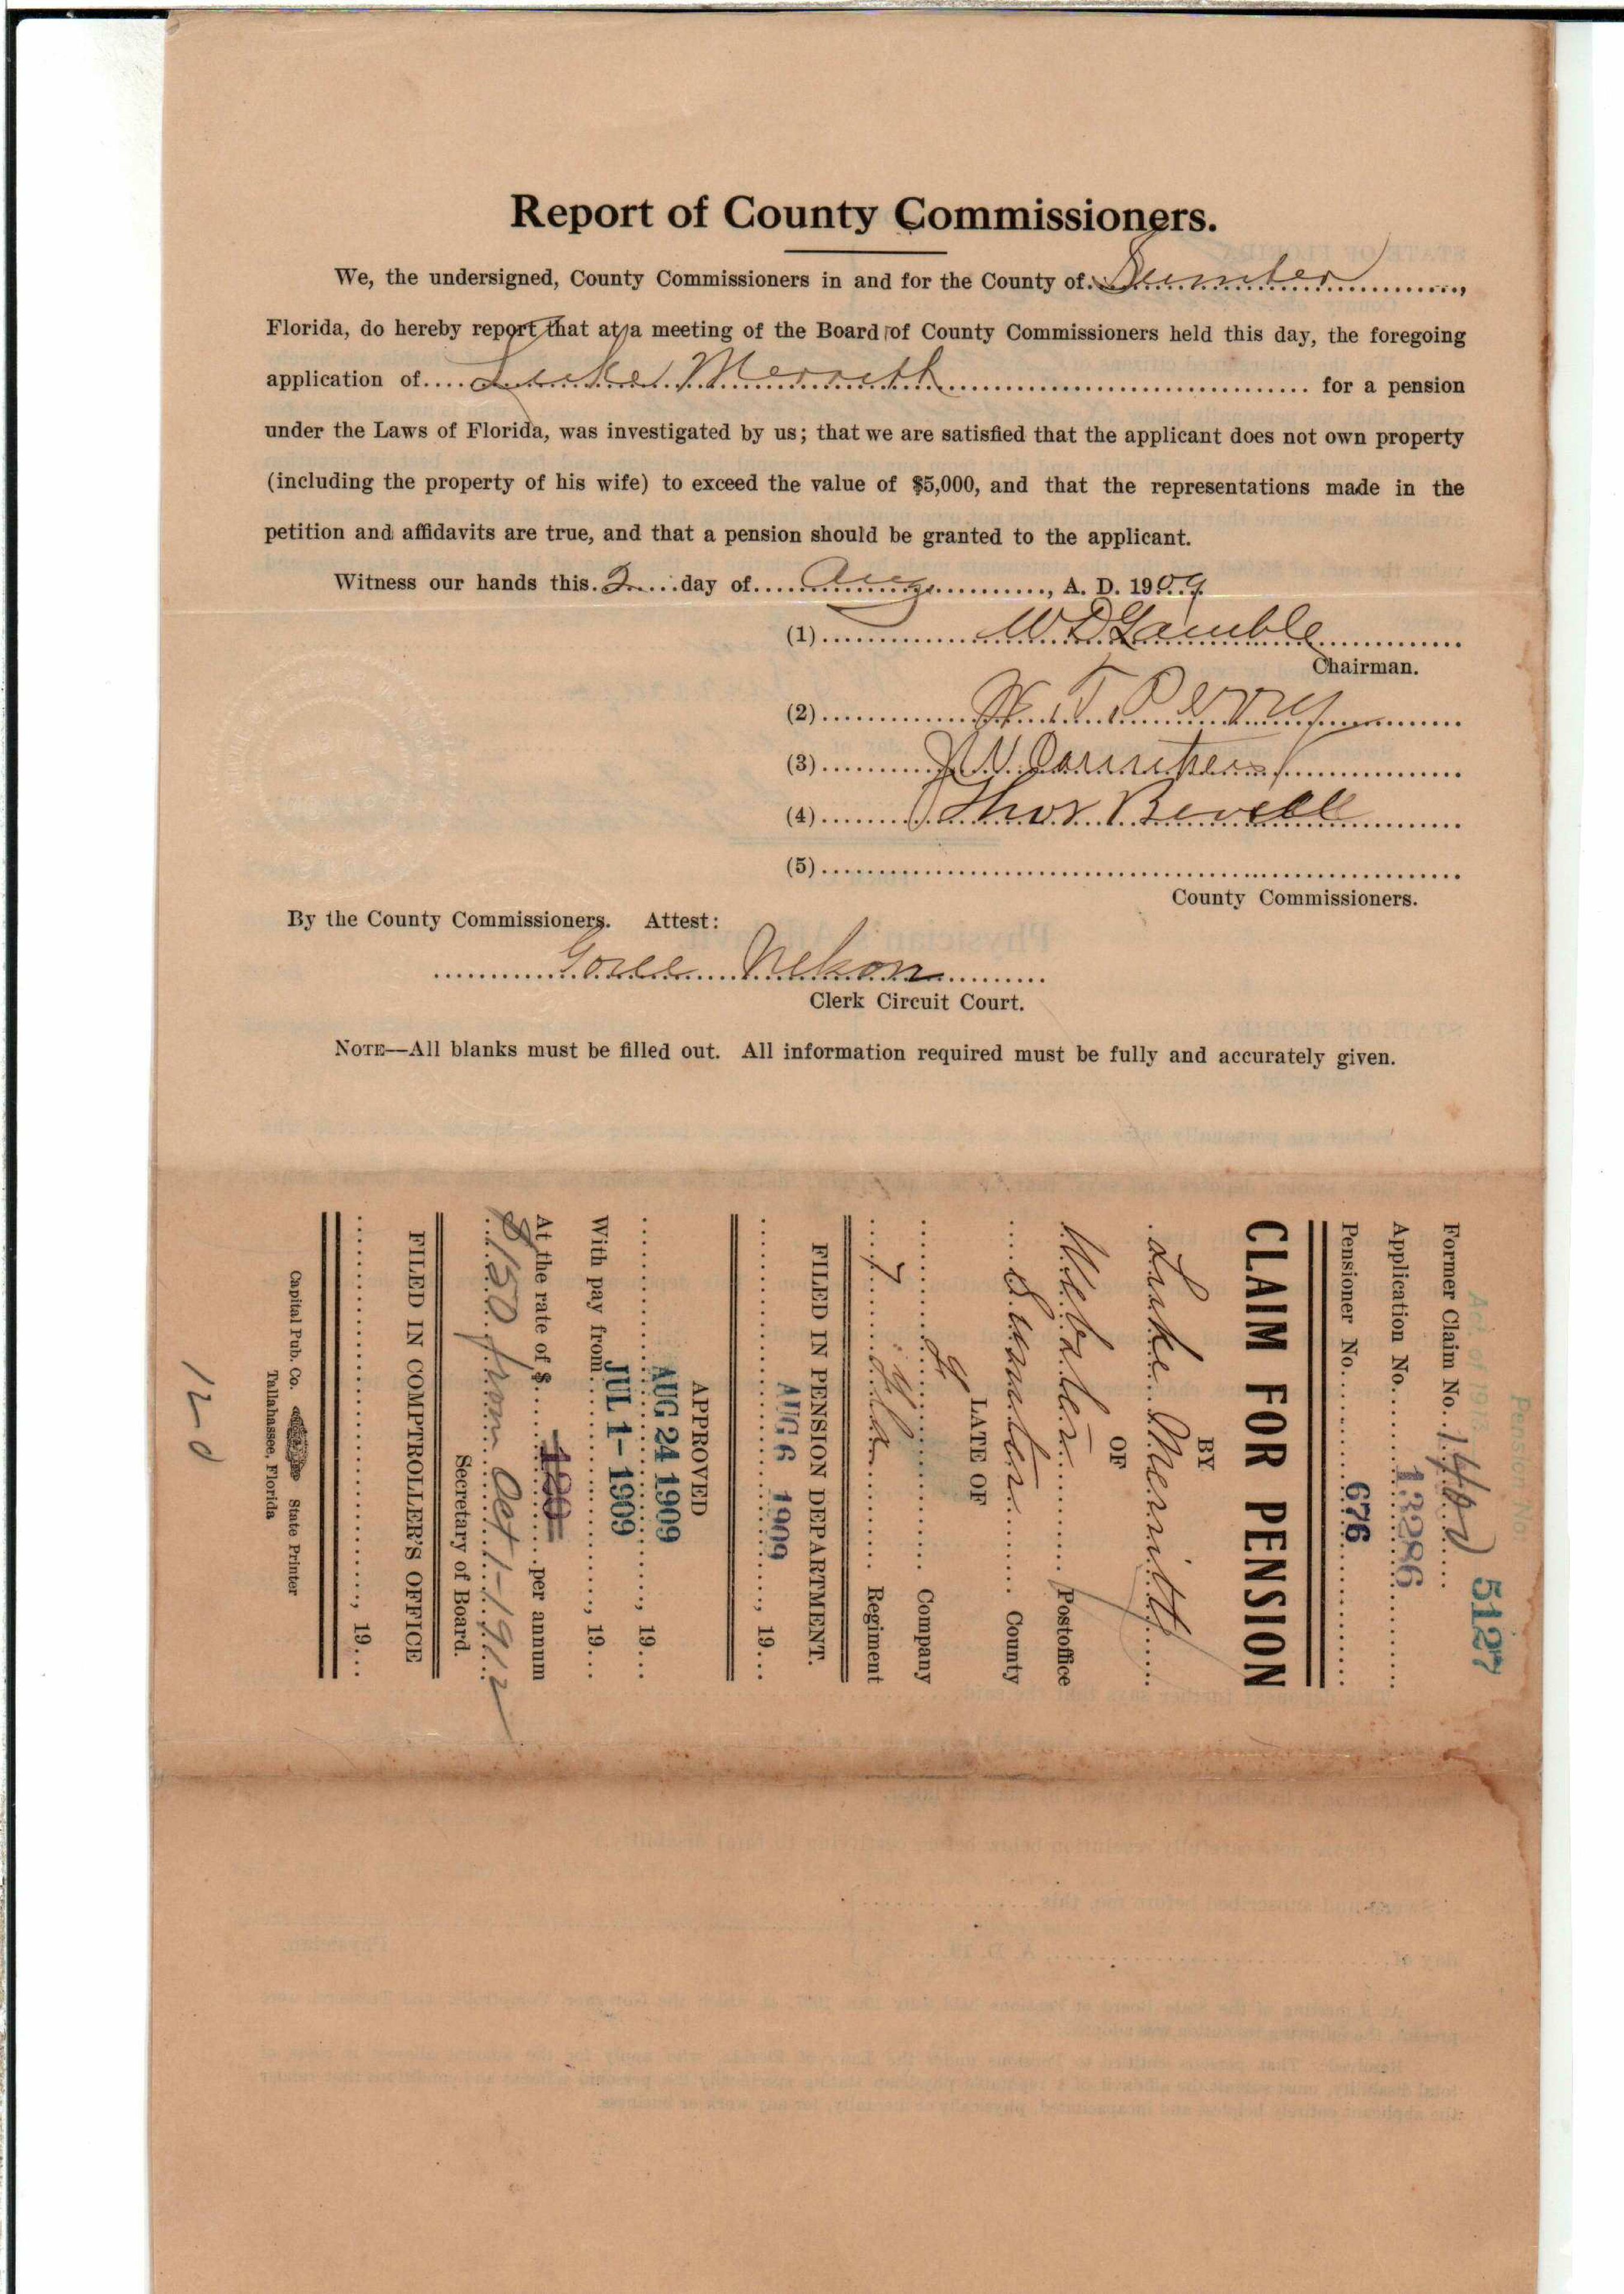 Report of County Commissioners.
We, the undersigned, County Commissioners in and for the County of Sumter,
Florida, do hereby report that at a meeting of the Board of County Commissioners held this day, the foregoing
application of Luke Merritt for a pension
under the Laws of Florida, was investigated by us; that we are satisfied that the applicant does not own property
(including the property of his wife) to exceed the value of $5,000, and that the representations made in the
petition and affidavits are true, and that a pension should be granted to the applicant.
Witness our hands this 2 day of Aug, A. D. 1909
(1) W D Gamble
Chairman.
(2) T. Perry
(3)
(4) Thos Bevill
(5)
County Commissioners.
By the County Commissioners. Attest:
Clerk Circuit Court.
NOTE—All blanks must be filled out. All information required must be fully and accurately given.
Pension No. 5127
Act of 1913.
Former Claim No.
Application No. 13286
Pensioner No. 676
CLAIM FOR PENSION
BY
Luke Merritt
OF
Webster Postoffice
Sumter County
LATE OF
G Company
7 Fla Regiment
FILED IN PENSION DEPARTMENT.
AUG 6 1909, 19
APPROVED
AUG 24 1909, 19
With pay from JUL 1-1909, 19
At the rate of $ 120 per annum
$150 from Oct 1-1912
Secretary of Board.
FILED IN COMPTROLLER'S OFFICE
, 19
Capital Pub. Co. State Printer
Tallahassee, Florida
120